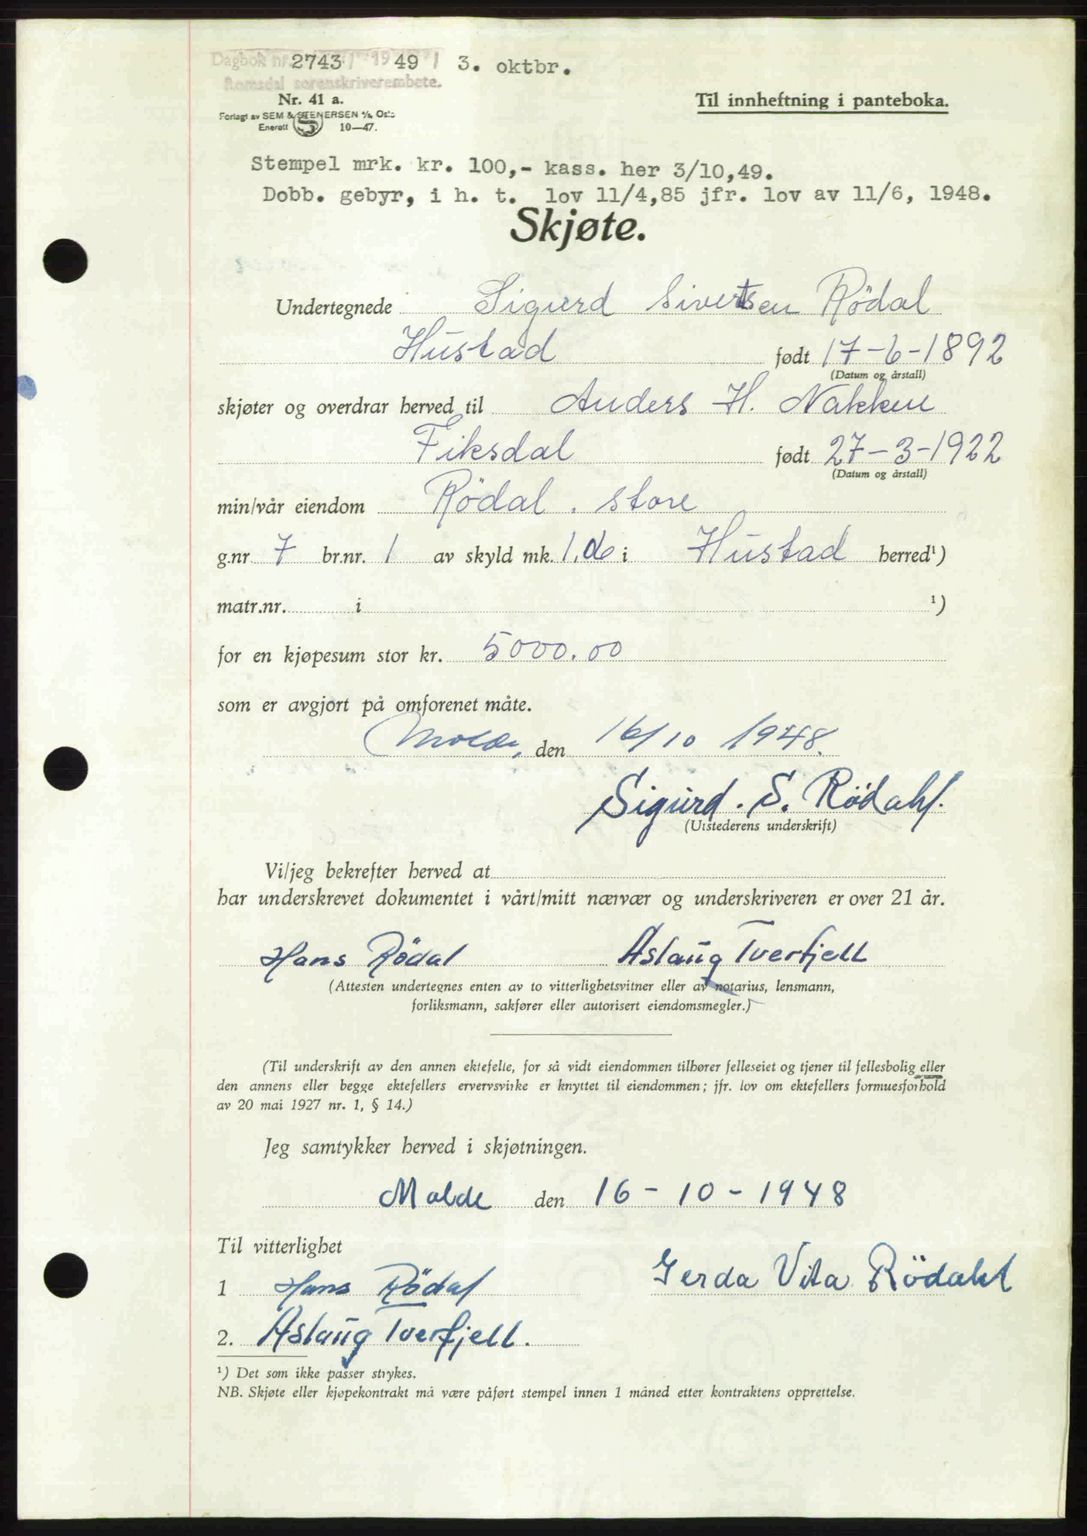 Dagbok nr. 2743 19 49 3. oktbr.
Romsdal sorenskriverembete.
Nr. 41 a.
Til innheftning i panteboka.
Forlagt av SEM & STENERSEN A/S, Oslo
Enerett 10—47.
Stempel mrk. kr. 100,- kass. her 3/10,49.
Dobb. gebyr, i h. t. lov 11/4,85 jfr. lov av 11/6, 1948.
Skjøte.
Undertegnede Sigurd Sivertsen Rödal
Hustad født 17-6-1892
(Datum og årstall)
skjøter og overdrar herved til Anders H. Nakken
Fiksdal født 27-3-1922
(Datum og årstall)
min/vår eiendom Rödal . store
g.nr 7 br.nr. 1 av skyld mk. 1.06 i Hustad herred¹)
matr.nr. i ¹)
for en kjøpesum stor kr. 5000.00
som er avgjort på omforenet måte.
Molde, den 16/10 1948.
Sigurd. S. Rödahl.
(Utstederens underskrift)
Vi/jeg bekrefter herved at
har underskrevet dokumentet i vårt/mitt nærvær og underskriveren er over 21 år.
Hans Rødal Aslaug Tverfjell
(Attesten undertegnes enten av to vitterlighetsvitner eller av notarius, lensmann,
forliksmann, sakfører eller autorisert eiendomsmegler.)
(Til underskrift av den annen ektefelle, for så vidt eiendommen tilhører felleseiet og tjener til fellesbolig eller
den annens eller begge ektefellers ervervsvirke er knyttet til eiendommen; jfr. lov om ektefellers formuesforhold
av 20 mai 1927 nr. 1, § 14.)
Jeg samtykker herved i skjøtningen.
Molde den 16-10-1948
Til vitterlighet
1 Hans Rødal Gerda Vita Rödahl
2. Aslaug Tverfjell.
¹) Det som ikke passer strykes.
NB. Skjøte eller kjøpekontrakt må være påført stempel innen 1 måned etter kontraktens opprettelse.